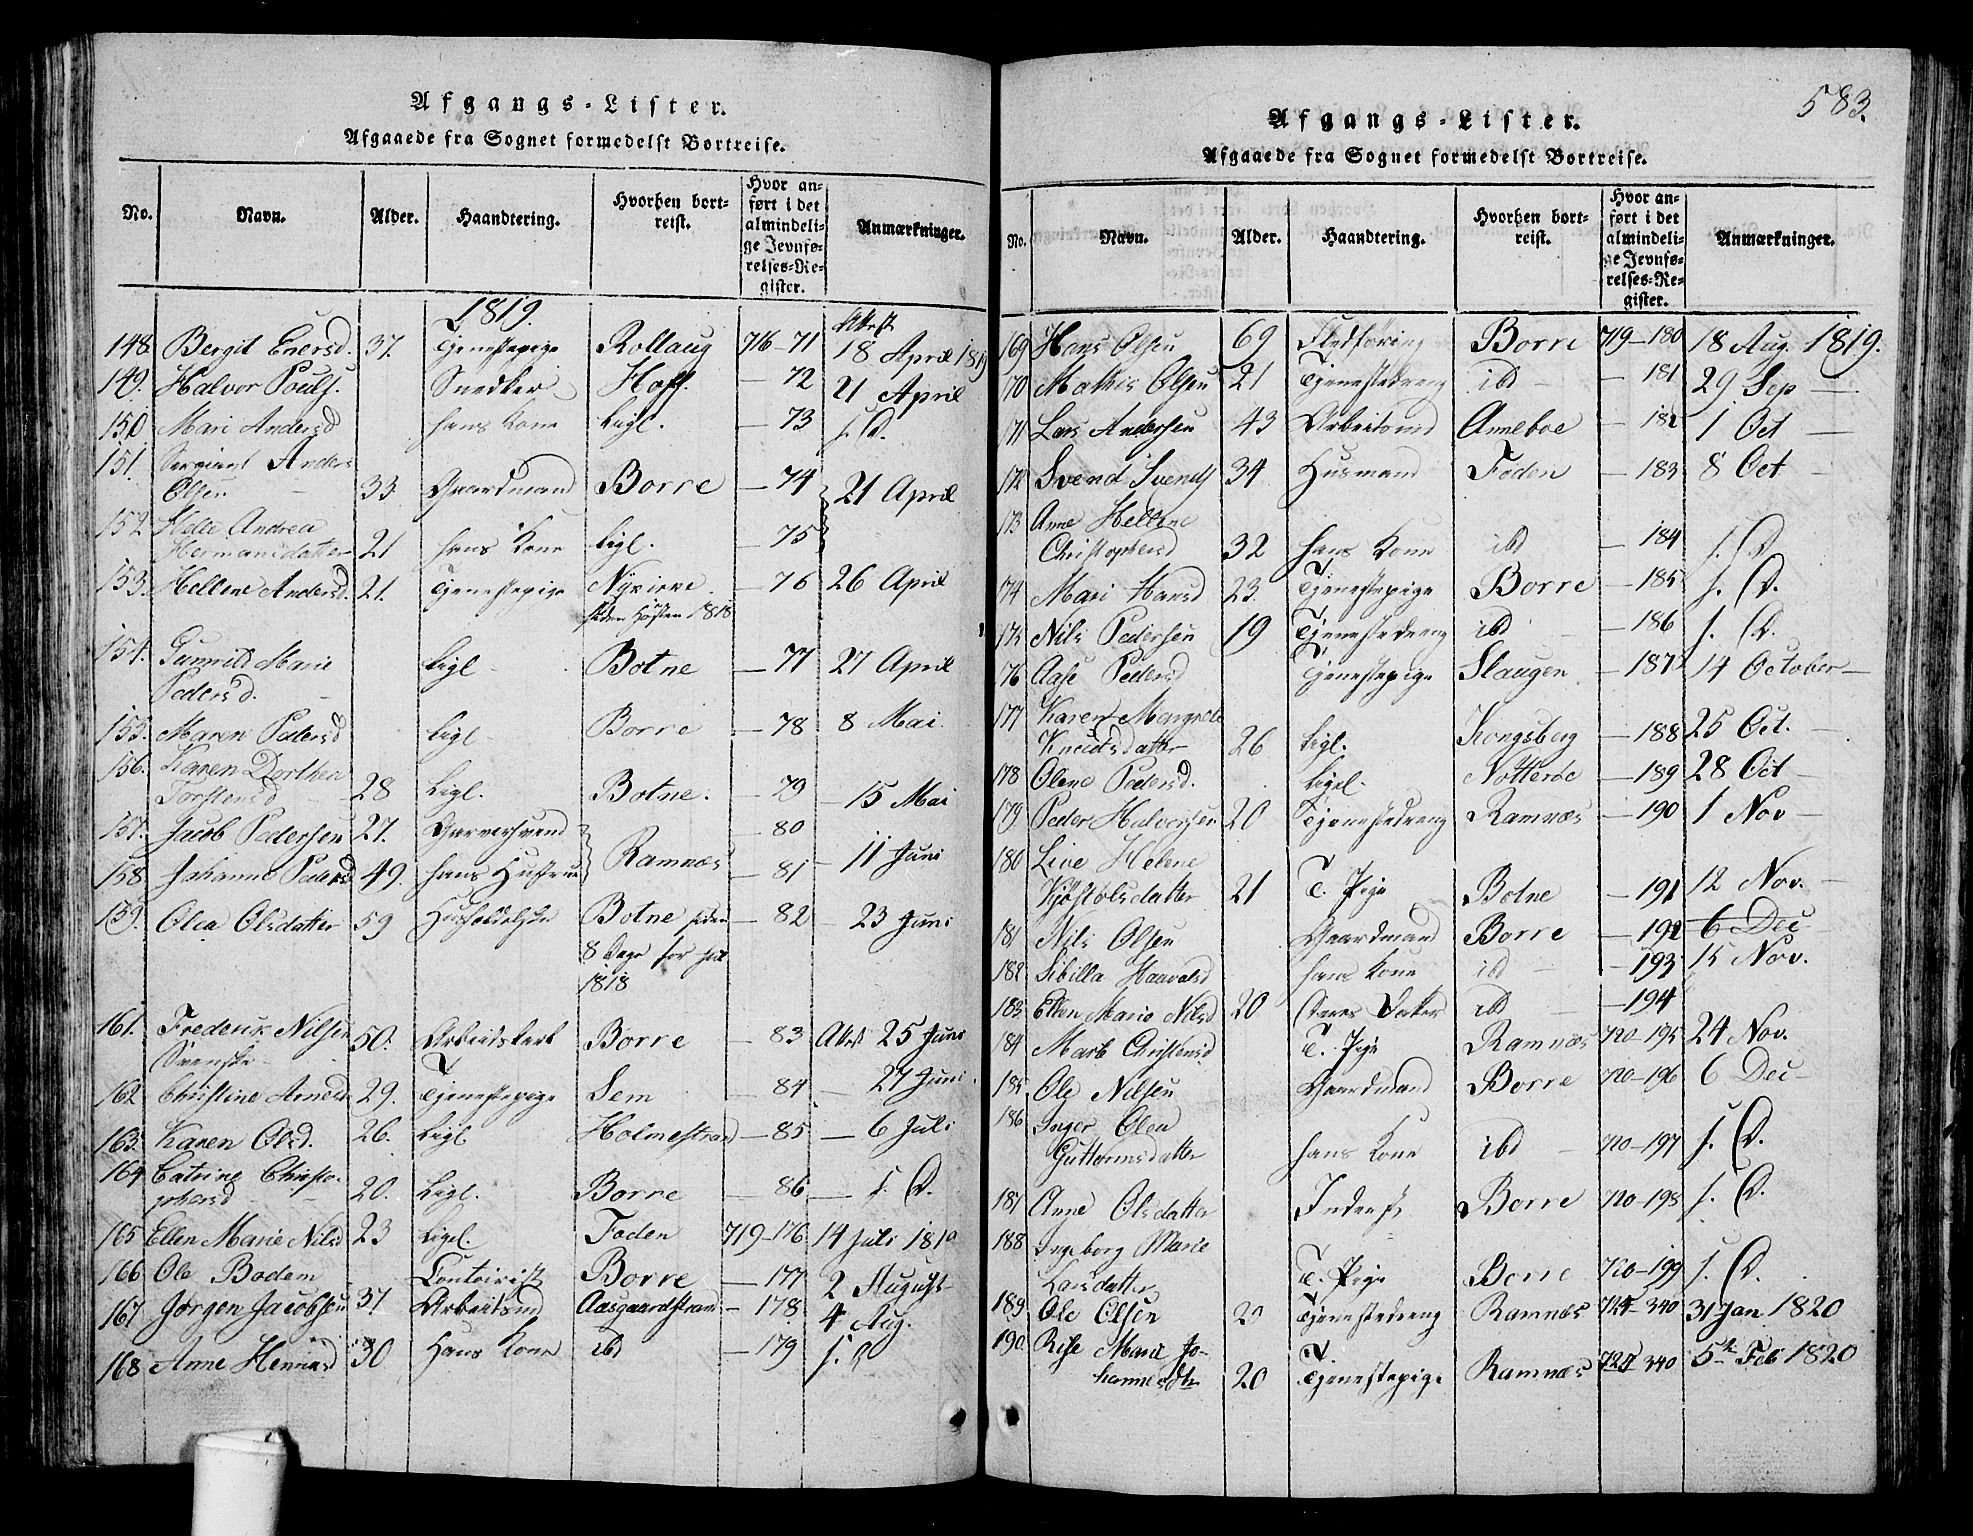 Afgangs-Lister.
Afgaaede fra Sognet formedelst Bortreise.
No. Navn. Alder. Haandtering. Hvorhen bortreist. Hvor anført i det almindelige Jevnførelses-Register. Anmærkninger.
1819.
148. Bergit Enersd. 37. Tjenestepige Rollaug 716-71 Attest 18 April 1819
149. Halvor Pouls. Snedker Hoff. - 72 21 April
150 Mari Andersd hans Kone ligl. - 73 s. D.
151. Sergiant Anders
Olsen - 33. Gaardmand Borre - 74 21 April
152 Helte Andrea
Hermansdatter 21 hans Kone ligl. - 75
153. Hellene Andersd. 21. Tjenestepige Nykirke - 76 26 April
siden Høsten 1818
154. Gunnild Marie
Pedersd. ligl - Botne - 77 27 April
155. Maren Pedersd ligl - Borre - 78 8 Mai
156. Karen Dorthea
Torstensd 28 Ligl. Botne. - 79 - 15 Mai
157. Jacob Pedersen 27. Garversvend Ramnæs - 80
158. Johanne Pedersd 49. hans Hustrue - 81 - 11 Juni
159. Olea Olsdatter 59 Botne siden - 82 - 23 Juni
8 Dage for Jul
1818
161. Frederik Nilsen
Svenske - 50. Arbeidskarl Borre - 83 Attest 25 Juni
162 Christine Arnesd 29. Tjenestepige Sem - 84 - 27 Juni.
163. Karen Olsd. 26. Ligl Holmestrand - 85 - 6 Juli
164 Catrine Christo-
phersd - 20. Ligl. Borre - 86 - s. D.
165 Ellen Marie Nilsd 23 Ligel. Foden 719-176 14 Juli 1819
166 Ole Bodem Contoirist Borre - 177 2 August
167 Jørgen Jacobsen 37. Arbeidsmd Aasgaardstrand - 178 4 Aug.
168 Anne Hennisd 30 Hans Kone ibd - 179 s. D
583.
Afgangs-Lister.
Afgaaede fra Sognet formedelst Bortreise.
No. Navn. Alder. Haandtering. Hvorhen bortreist. Hvor anført i det almindelige Jevnførelses-Register. Anmærkninger.
169 Hans Olsen 69 Fledføring Borre 719-180 18 Aug. 1819.
170 Mathis Olsen 21 Tjenestedreng ibd - - 181 29 Sep -
171 Lars Andersen 43 Arbeidsmd Anneboe - 182 1 Oct -
172 Svend Svends 34 Husmand Foden - 183 8 Oct -
173 Anne Hellene
Christophersd 32 hans Kone ibd - 184 s. D.
174 Mari Hansd 23. Tjenestepige Borre - 185 s. D.
175 Nils Pedersen 19 Tjenestedreng ibd - 186 s. D.
176 Aase Pedersd Tjenestepige Slaugen - 187 14 October -
177 Karen Margrete
Knudsdatter 26 Ligl. Kongsberg - 188 25 Oct. -
178 Olene Pedersd. Ligel. Nøtterøe - 189 28 Oct -
179 Peder Halvorsen 20 Tjenestedreng Ramnæs - 190 1 Nov -
180 Live Helene
Kjøstolsdatter 21 T. Pige Botne - 191 12 Nov. -
181 Nils Olsen Gaardmand Borre - 192 6 Dec
182 Sibilla Haavalsd hans Kone ibd - - 193 15 Nov.
183 Ellen Marie Nilsd 20 deres Datter ibd - 194
184 Marte Christensd T. Pige Ramnæs 720-195 24 Nov.
185 Ole Nilsen Gaardmand Borre 720-196 6 Dec -
186 Inger Olea
Guttormsdatter hans Kone ibd - 720-197 s. D.
187 Anne Olsdatter Inderst Borre 720-198 s. D.
188 Ingeborg Marie
Larsdatter T. Pige Borre 720-199 s. D.
189 Ole Olsen 20 Tjenestedreng Ramnæs 340 31 Jan 1820
190. Rise Maria Jo-
hannesdtr 20 Tjenestepige Ramnæs 340 5te Feb 1820